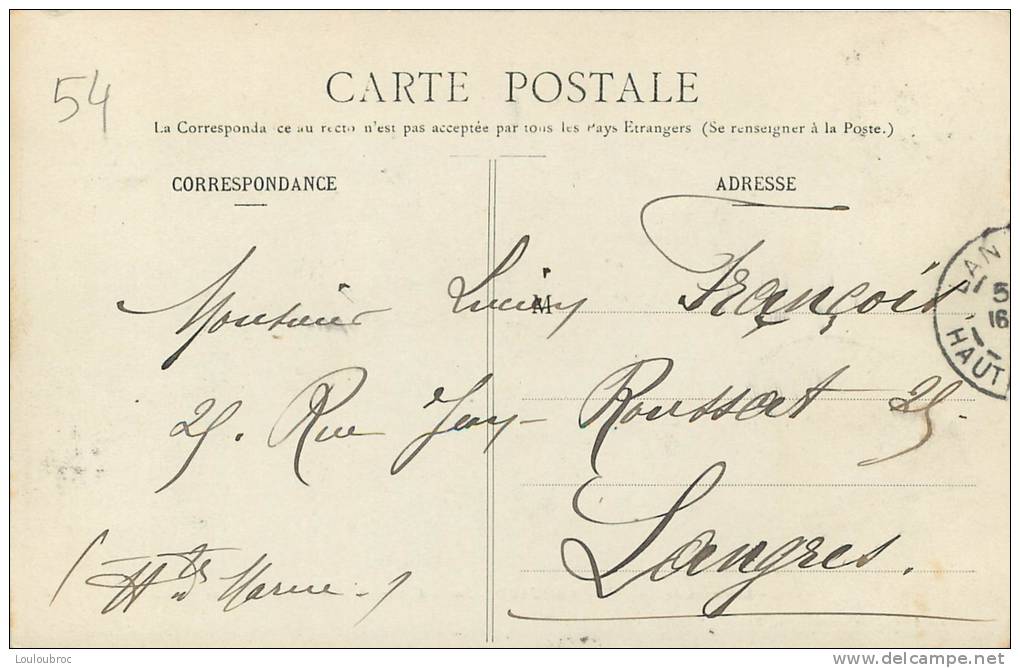 54
CARTE POSTALE
La Correspondance au recto n'est pas acceptée par tous les Pays Etrangers (Se renseigner à la Poste.)
CORRESPONDANCE
ADRESSE
Monsieur Lucien M François
25. Rue Jean Roussat 25
Langres.
(Hte Marne)
LAN
5
16
HAUT
Louloubroc
www.delcampe.net